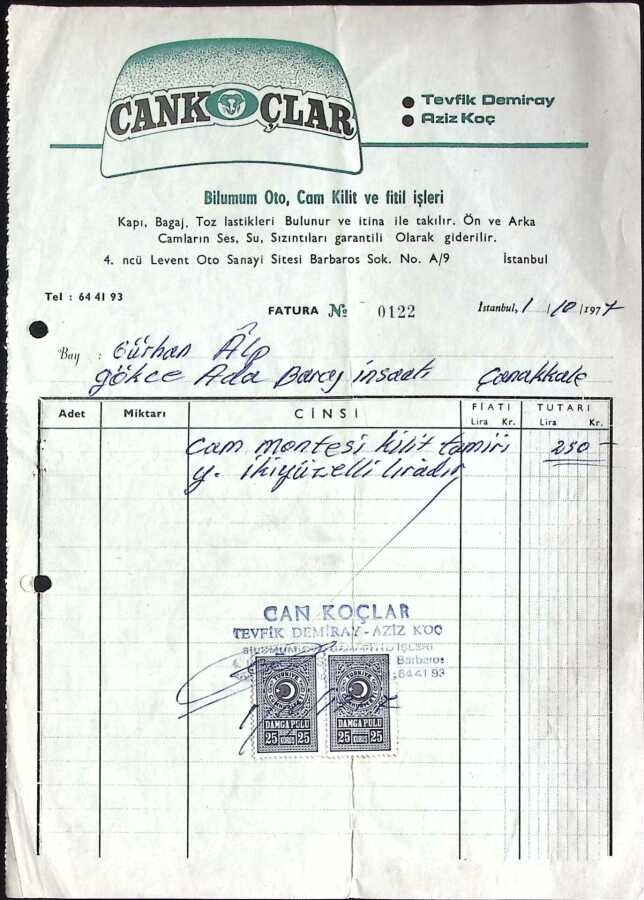 CANKOÇLAR
Tevfik Demiray
Aziz Koç
Bilumum Oto, Cam Kilit ve fitil işleri
Kapı, Bagaj, Toz lastikleri Bulunur ve itina ile takılır. Ön ve Arka
Camların Ses, Su, Sızıntıları garantili Olarak giderilir.
4. ncü Levent Oto Sanayi Sitesi Barbaros Sok. No. A/9 İstanbul
Tel : 64 41 93
FATURA № 0122
İstanbul, 1/10/1977
Bay : Gürhan Alp
Gökce Ada Baraj inşaatı Çanakkale
Adet Miktarı CİNSİ FİATI TUTARI
Lira Kr. Lira Kr.
Cam montesi kilit tamiri 250-
y. ikiyüzelli liradır
CAN KOÇLAR
TEVFİK DEMİRAY - AZİZ KOÇ
Barbaros
64 41 93
TÜRKİYE TÜRKİYE
DAMGA PULU DAMGA PULU
25 KURUŞ 25 25 KURUŞ 25